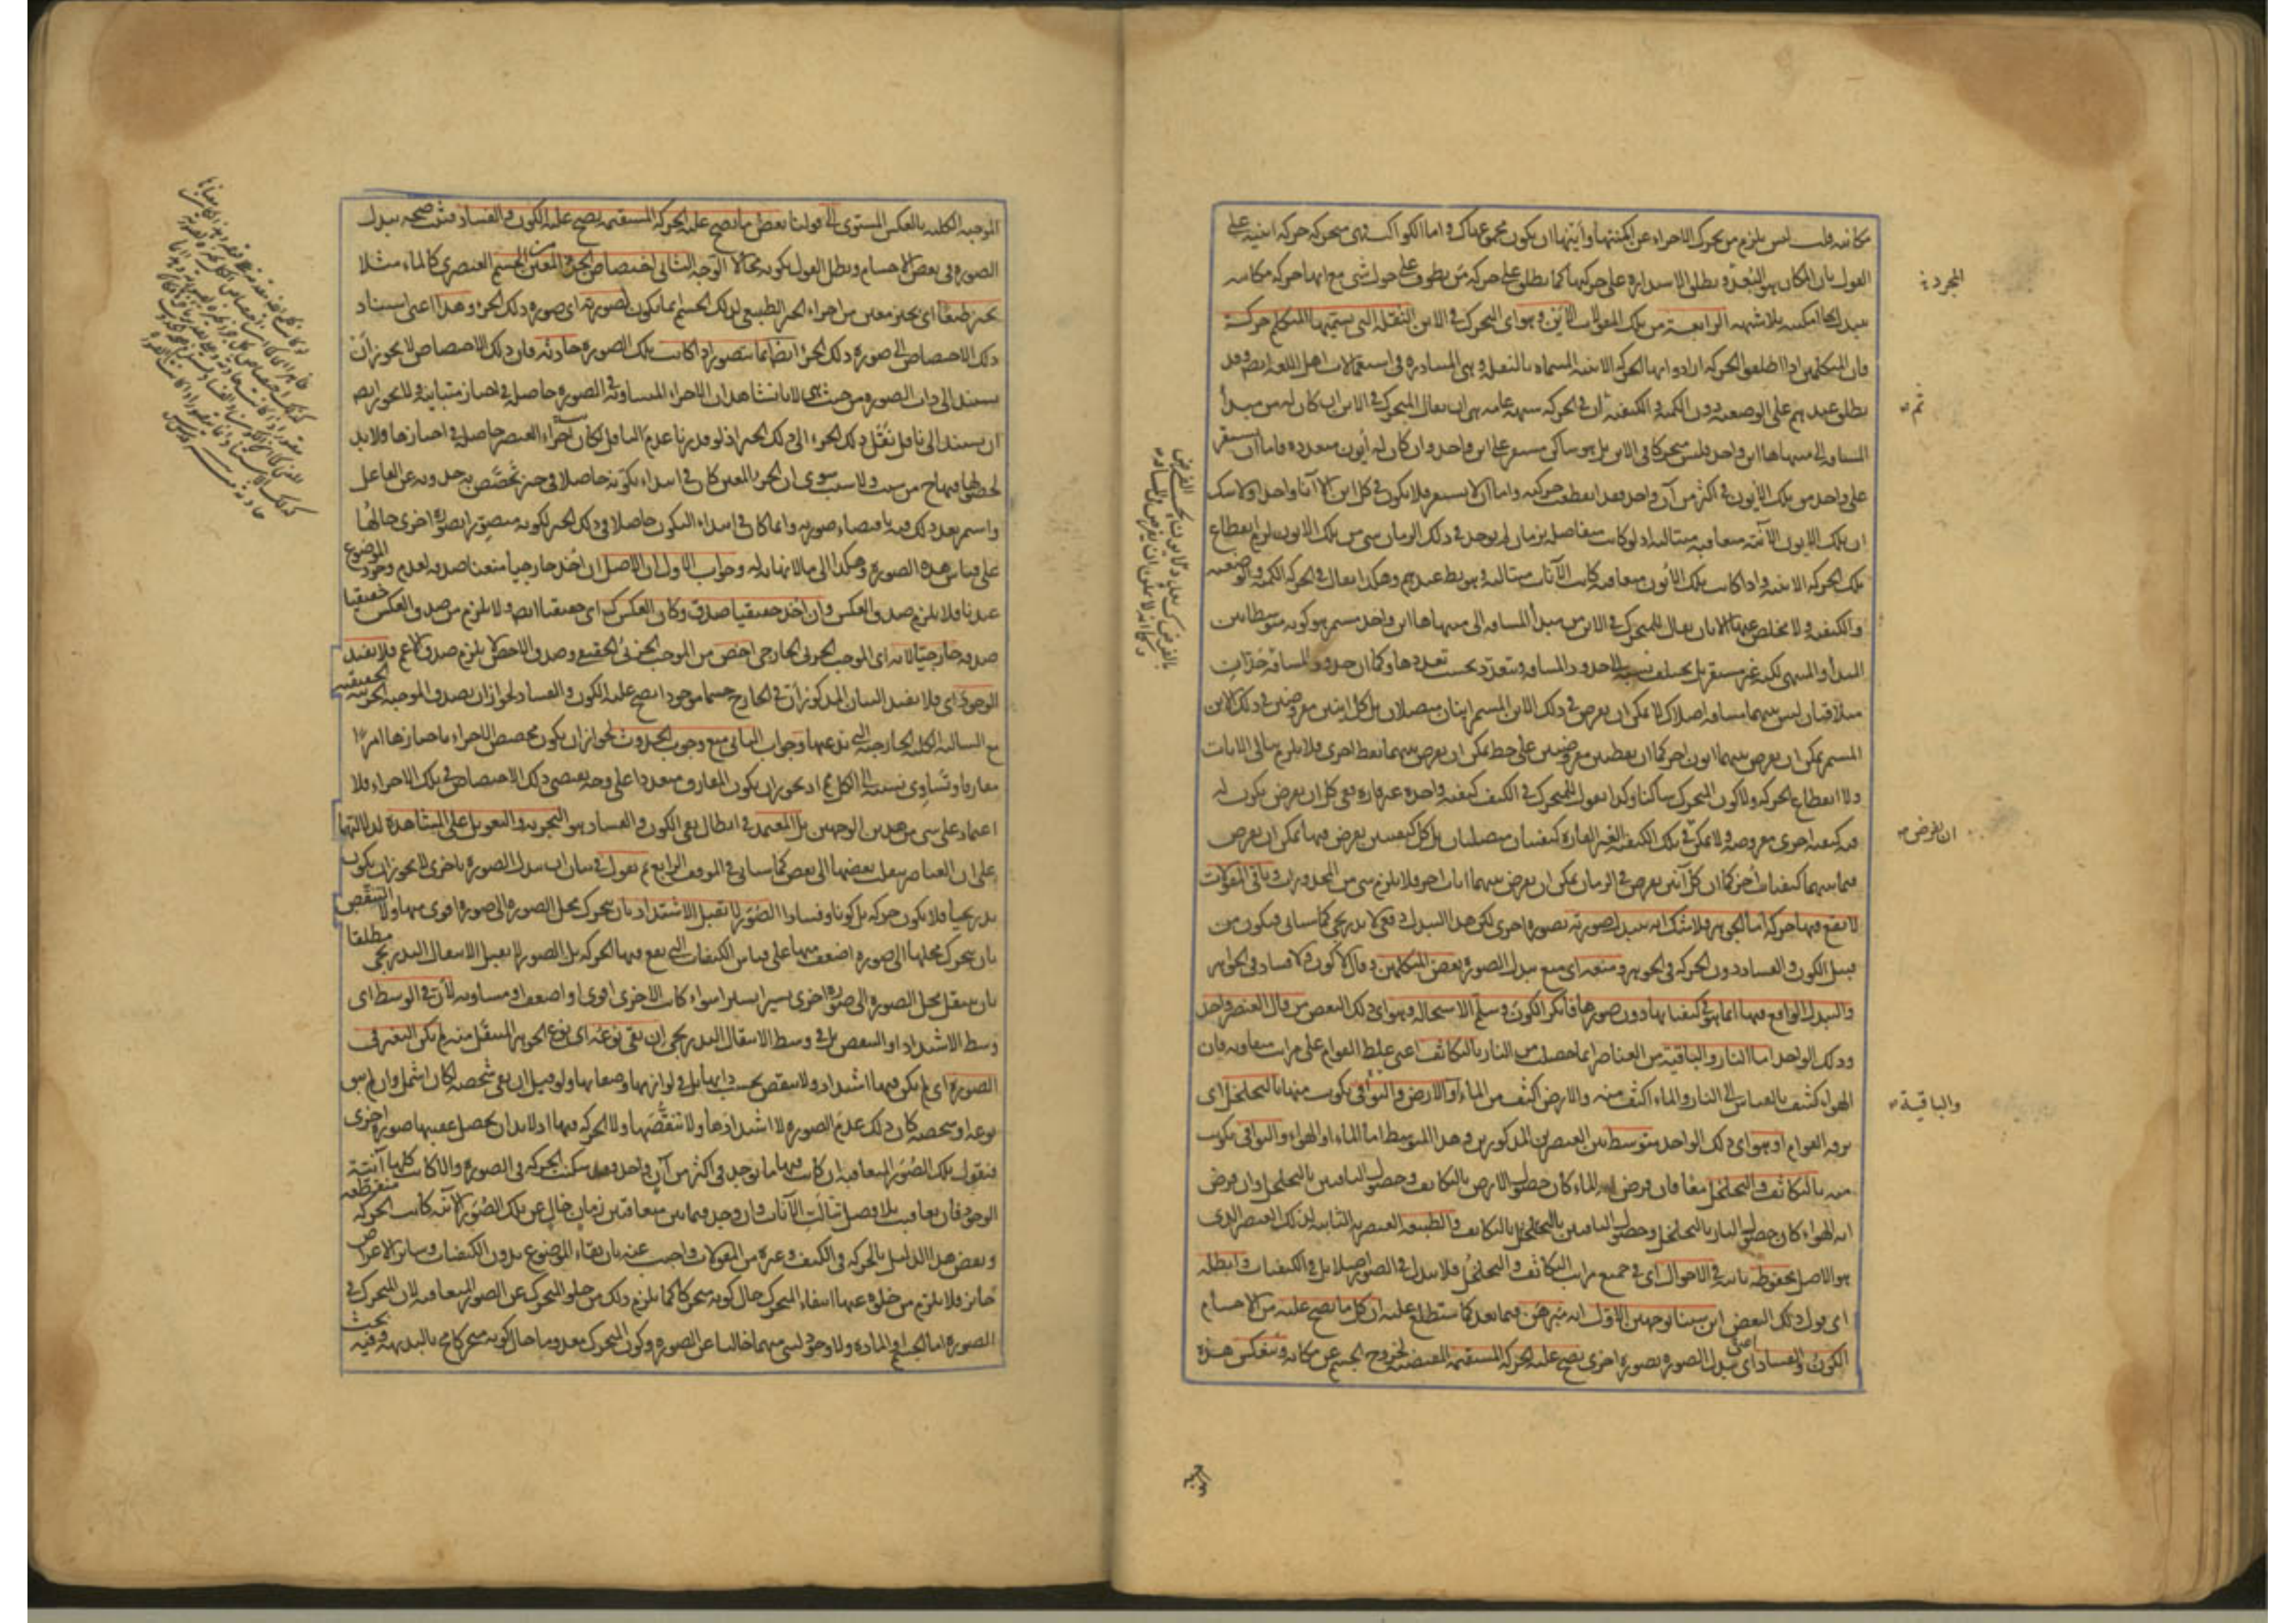 مكانية قلت ليس يلزم من تحرك الاجزاء عن امكنتها وأينها ان يكون مجموع هناك واما الكواكب فهي متحركة حركة اينية على
القول بان المكان هو البعد وبطلق الاستدارة على حركتها كما يطلق على حركة من يطوف على حول شيء مع انها حركة مكانية
المجردة
الرابعة من تلك المقولات الاين وهو اي التحرك في الاين النقلة التي يسميها المتكلم حركة
فان المتكلمين اذا اطلقوا الحركة ارادوا بها الحركة الاينية المسماة بالنقلة وهي المتبادرة في استعمالات اهل اللغة ايضا وقد
يطلق عندهم على الوضعية دون الكمية والكيفية ان في الحركة شبهة عامة هي ان يقال المتحرك في الاين ان كان له من مبدأ
ثم
المسافة الى منتهاها اين واحد فليس متحركا في الاين بل هو ساكن مستقر على اين واحد وان كان له أيون متعددة فاما ان يستقر
على واحد من تلك الأيون في اكثر من آن واحد فقد انقطعت حركته واما ان لا يستقر فلا يكون في كل اين الا آنا واحدا ولا شك
ان تلك الايون الآنية متعاقبة متتالية اذ لو كانت متفاصلة بزمان لم يوجد في ذلك الزمان شيء من تلك الايون لزم انقطاع
تلك الحركة الاينية واذا كانت تلك الأيون متعاقبة كانت الآنات متتالية وهو بط عندهم وهكذا يقال في الحركة الكمية والوضعية
والكيفية ولا مخلص عنها الا بان يقال للمتحرك في الاين من مبدأ المسافة الى منتهاها اين واحد مستمر هو كونه متوسطا بين
المبدأ والمنتهى لكنه غير مستقر بل يختلف نسبته الى حدود المسافة ويتعدد بحسب تعددها وكما ان حدود المسافة
متلاقيان ليس بينهما مسافة اصلا كذلك لا يمكن ان يفرض في ذلك الاين المستمر اينان متصلان بل كل اينين مفروضين في ذلك الاين
المستمر يمكن ان يفرض بينهما ايون اخر كما ان نقطتين مفروضتين على خط يمكن ان يفرض بينهما نقط اخرى فلا يلزم تتالي الآنات
ولا انقطاع الحركة ولا كون المتحرك ساكنا وكذا نقول للمتحرك في الكيف كيفية واحدة غير قارة ففي كل ان يفرض يكون له
فيه كيفية اخرى مفروضة ولا يمكن في تلك الكيفية الغير القارة كيفيتان متصلتان بل كل كيفيتين يفرض فيها يمكن ان يفرض
ان يفرض
فيما بينهما كيفيات أخر كما ان كل آنين يفرض في الزمان يمكن ان يفرض بينهما آنات اخر فلا يلزم شيء من المحذورات وباقي المقولات
لا يقع فيها حركة اما الجوهر فلا شك انه يتبدل صورته بصورة اخرى لكن هذا التبدل دفعي لا تدريجي كما سيأتي فيكون من
قبيل الكون والفساد دون الحركة في الجوهر ومنعه اي منع تبدل الصورة بعض المتكلمين وقال لا كون ولا فساد في الجواهر
والتبدل الواقع فيها انما هو في كيفياتها دون صورها فأنكر الكون وسلم الاستحالة وهو اي ذلك البعض من قال العنصر واحد
وذلك الواحد اما النار والباقية من العناصر انما حصلت من النار بالتكاثف اعني غلظ القوام على مراتب متفاوتة فان
الهواء كثيف بالقياس الى النار والماء اكثف منه والارض اكثف من الماء او الارض والبواقي تكونت منها بالتخلخل اي
والباقية
برقة القوام او هو اي ذلك الواحد متوسط بين العنصرين المذكورين وهذا المتوسط اما الماء او الهواء والبواقي تكونت
منه بالتكاثف والتخلخل معا فان فرض انه الماء كان حصول الارض بالتكاثف وحصول الباقيين بالتخلخل وان فرض
انه الهواء كان حصول النار بالتخلخل وحصول الباقيين بالتكاثف والطبيعة العنصرية الثابتة لذلك العنصر الذي
هو الاصل محفوظة ثابتة في الاحوال اي في جميع مراتب التكاثف والتخلخل فلا تبدل في الصور اصلا بل في الكيفيات وابطله
اي قول ذلك البعض ابن سينا بوجهين الاول انه مبرهن فيما بعد كما ستطلع عليه ان كل ما يصح عليه من الاجسام
الكون والفساد اي تبدل الصورة بصورة اخرى يصح عليه الحركة المستقيمة المقتضية لخروج الجسم عن مكانه وينعكس هذه
الموجبة الكلية بالعكس المستوي الى قولنا بعض ما يصح عليه الحركة المستقيمة يصح عليه الكون والفساد فثبت صحة تبدل
الصورة في بعض الاجسام وبطل القول بكونه محالا الوجه الثاني اختصاص الجزء المعين من الجسم العنصري كالماء مثلا
بحيز طبعا اي بحيز معين من اجزاء الحيز الطبيعي لذلك الجسم انما يكون لصورته اي صورة ذلك الجزء وهذا اعني استناد
ذلك الاختصاص الى صورة ذلك الجزء ايضا انما يتصور اذا كانت تلك الصورة حادثة فان ذلك الاختصاص لا يجوز أن
يستند الى ذات الصورة من حيث هي لانا نشاهد ان الاجزاء المتساوية في الصورة حاصلة في احياز متباينة ولا يجوز ايضا
ان يستند الى ناقل نقل ذلك الجزء الى ذلك الحيز اذ لو قدرنا عدم الناقل لكان اجزاء العنصر حاصلة في احيازها فلا بد
لحصولها فيها ح من سبب ولا سبب سوى ان الجزء المعين كان في ابتداء تكونه حاصلا في حيز تخصص به حدوثه عن الفاعل
واستمر بعد ذلك فيه باقتضاء صورته وانما كان في ابتداء التكون حاصلا في ذلك الحيز لكونه متصورا بصورة اخرى حالها
على قياس هذه الصورة وهكذا الى ما لا نهاية له وجواب الاول ان الاصل ان اخذ خارجيا منعنا صدقه لعدم وجود الموضوع
عندنا فلا يلزم صدق العكس وان اخذ حقيقيا صدق وكان العكس كك اي حقيقيا ايضا ولا يلزم من صدق العكس حقيقيا
صدقه خارجيا لانه اي الموجب الجزئي الخارجي اخص من الموجب الجزئي الحقيقي وصدق الاخص لا يلزم صدق الاعم فلا يفيد
الوجود اي فلا يفيد البيان المذكور أن في الخارج جسما موجودا يصح عليه الكون والفساد لجواز ان يصدق الموجبة الجزئية الحقيقية
مع السالبة الكلية الخارجية التي ندعيها وجواب الثاني منع وجوب الحدوث لجواز ان يكون مخصص الاجزاء باحيازها امرا
مفارقا وتساوي نسبته الى الكل مم اذ يجوز ان يكون المفارق متعددا على وجه يقتضي ذلك الاختصاص في تلك الاجزاء فلا
اعتماد على شيء من هذين الوجهين بل المعتمد في ابطال نفي الكون والفساد هو التجربة والتعويل على المشاهدة لدلالتها
على ان العناصر ينقلب بعضها الى بعض كما سيأتي في الموقف الرابع ثم نقول في بيان ان تبدل الصورة باخرى لا يجوز ان يكون
تدريجيا فلا يكون حركة بل كونا وفسادا الصور لا تقبل الاشتداد بان يتحرك محل الصورة الى صورة اقوى منها ولا التنقص
بان يتحرك محلها الى صورة اضعف منها على قياس الكيفيات التي يقع فيها الحركة بل الصور لا يقبل الانتقال التدريجي مطلقا
بان ينتقل محل الصورة الى صورة اخرى يسيرا يسيرا سواء كانت الاخرى اقوى او اضعف او مساوية لأن في الوسط اي
وسط الاشتداد او التنقص بل في وسط الانتقال التدريجي ان بقي نوعه اي نوع الجوهر المنتقل منه لم يكن التغير في
الصورة اي لم يكن فيها اشتداد ولا تنقص بحسب ذاتها بل في لوازمها وصفاتها ولو قيل ان بقي شخصه لكان اشمل وان لم يبق
نوعه او شخصه كان ذلك عدم الصورة لا اشتدادها ولا تنقصها ولا الحركة فيها اذ لا بد ان يحصل عقيبها صورة اخرى
فنقول تلك الصور المتعاقبة ان كانت فيها ما يوجد في اكثر من آن واحد فقد سكنت الحركة في الصورة والا كانت كلها آنية
الوجود فان تعاقبت بلا فصل تتالت الآنات وان وجد فيما بين متعاقبتين زمان خال عن تلك الصور الآنية كانت الحركة منقطعة
ونقض هذا الدليل بالحركة في الكيف وغيره من المقولات واجيب عنه بان بقاء الموضوع بدون الكيفيات وسائر الاعراض
جائز فلا يلزم من خلوه عنها انتفاء المتحرك حال كونه متحركا كما يلزم ذلك من خلو المتحرك عن الصور المتعاقبة لان المتحرك في
الصورة اما الجسم او المادة ولا وجود لشيء منهما خاليا عن الصورة وكون المتحرك معدوما حال كونه متحركا مح بالبديهة وفيه بحث